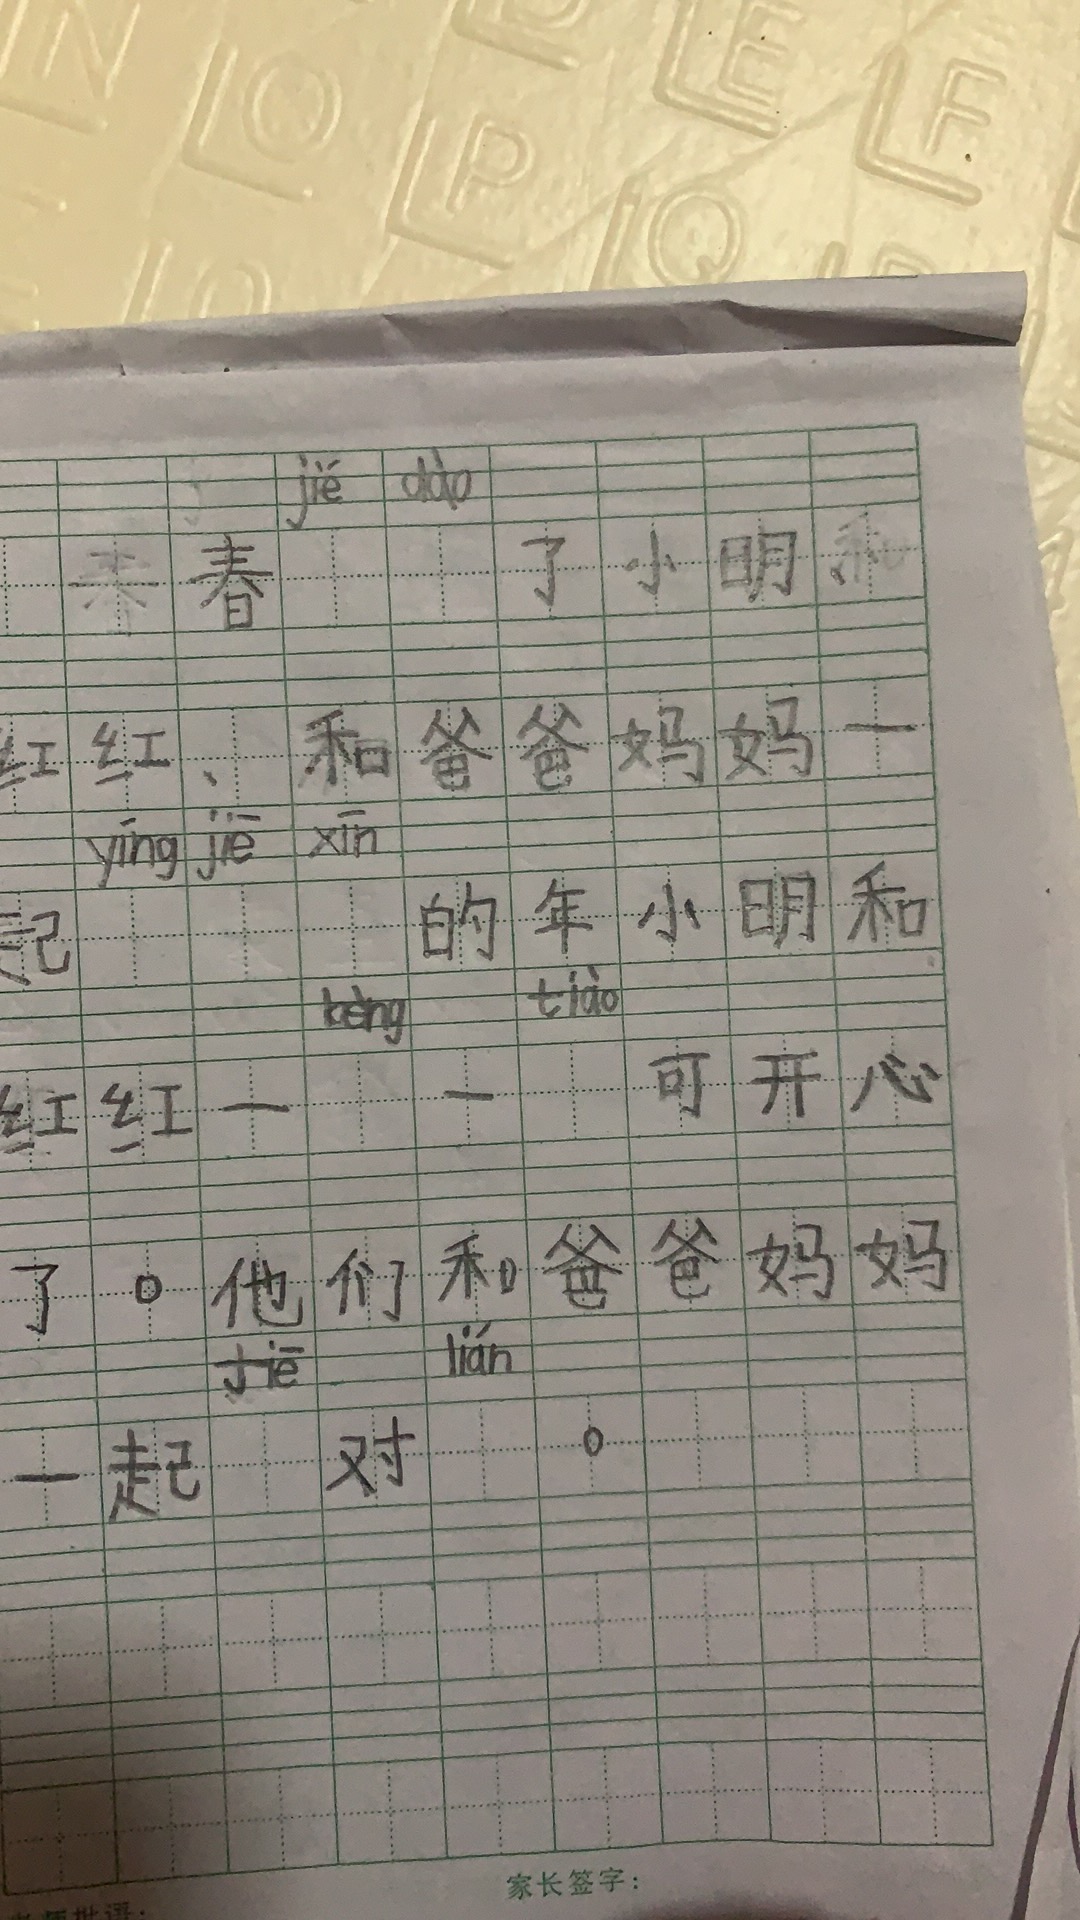 N O P Q E F
jié dào
春 了 小 明
红 红 、 和 爸 爸 妈 妈 一
yíng jiē xīn
起 的 年 小 明 和
bèng tiào
红 红 一 一 可 开 心
了 。 他 们 和 爸 爸 妈 妈
tiē lián
一 起 对 。
家长签字:
老师批语: